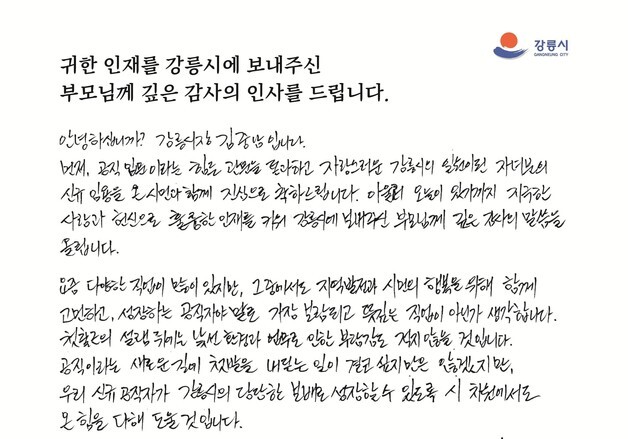 강릉시
GANGNEUNG CITY
귀한 인재를 강릉시에 보내주신
부모님께 깊은 감사의 인사를 드립니다.
안녕하십니까? 강릉시장 김중남입니다.
먼저, 공직 입문이라는 힘든 관문을 통과하고 자랑스러운 강릉시의 일원이 된 자녀분의
신규 임용을 온 시민과 함께 진심으로 축하드립니다. 아울러 오늘이 있기까지 지극한
사랑과 헌신으로 훌륭한 인재를 키워 강릉시에 보내주신 부모님께 깊은 감사의 말씀을
올립니다.
요즘 다양한 직업이 많이 있지만, 그 중에서도 지역발전과 시민의 행복을 위해 함께
고민하고, 성장하는 공직자야 말로 가장 보람되고 뜻깊은 직업이 아닌가 생각합니다.
첫 출근의 설렘 뒤에는 낯선 환경과 업무로 인한 부담감도 적지 않을 것입니다.
공직이라는 새로운 길에 첫발을 내딛는 일이 결코 쉽지만은 않겠지만,
우리 신규 공직자가 강릉시의 당당한 보배로 성장할 수 있도록 시 차원에서도
온 힘을 다해 도울 것입니다.